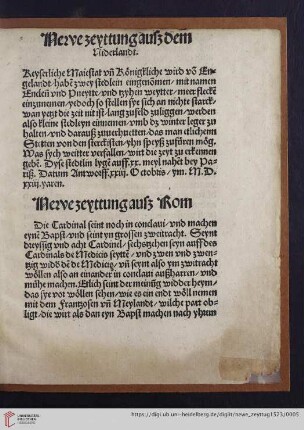 Newe zeyttung auß dem
Niderlandt.
Keyserliche Maiestat vñ Königkliche wird võ En-
gelandt habẽ zwey stedlein eingenõmen / mit namen
vnd weytter / meer fleckẽ
einzunemen / yedoch so stellen sye sich an nichte starck-
wan yetzt die zeit nit ist lang zu feld zuliggen / werden
also kleine stedleyn einnemen / vmb dz winter leger zu
halten / vnd darauß zuuerhuetten / das man etlichem
Stetten von den sterckisten / yhn speyß zufüren mög.
Was sych weitter verfallen / wirt die zeyt zu erkennen
gebẽ. Dyse stedtlin lygẽ auff .xx. meyl nahẽt bey Pa-
riß. Datum Antworff .xxij. Octobris / ym. M.D.
xxiij. yaren.
Newe zeyttung auß Rom
Die Cardinal seint noch in conclaui / vnd machen
eynẽ Bapst / vnd seint yn grossen zweitracht. Seynt
dreyssig vnd acht Cardinel / sechstzehen seyn auff des
Cardinals de Medicis seytẽ / vnd zwen vnd zwen-
tzig widẽ dẽ de Medicis / vñ seynt also ym zwitracht
wöllen also an einander in conclaui außharren / vnd
mühe machen. Etlich seint der meinũg widder heym /
das sye vor wöllen sehen / wie es ein endt wöll nemen
mit dem Frantzosen vñ Meylandt / wilche part ob-
ligt / die wirt als dan eyn Bapst machen nach yhrem
https://digi.ub.uni-heidelberg.de/diglit/newe_zeyttug1523/0005
UNIVERSITÄTS-
BIBLIOTHEK
HEIDELBERG